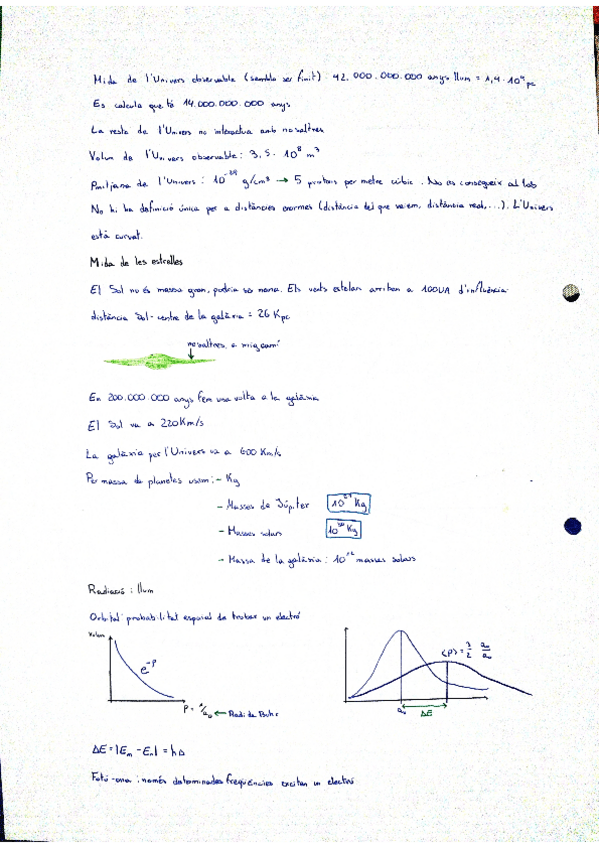 Mida de l'Univers observable (sembla ser finit): 42.000.000.000 anys llum = 1,4·10¹⁰ pc
Es calcula que té 14.000.000.000 anys
La resta de l'Univers no interactua amb nosaltres
Volum de l'Univers observable: 3,5·10⁸ m³
mitjana de l'Univers: g/cm³ → 5 protons per metre cúbic. No es consegueix al lab
No hi ha definició única per a distàncies enormes (distància del que veiem, distància real,...). L'Univers
està curvat.
Mida de les estrelles
El Sol no és massa gran, podria ser nana. Els vents estelars arriben a 100UA d'influència
distància Sol-centre de la galàxia = 26 Kpc
nosaltres, a mig camí
En 200.000.000 anys fem una volta a la galàxia
El Sol va a 220Km/s
La galàxia per l'Univers va a 600 Km/s
Per massa de planetes usem: - Kg
- Masses de Júpiter 10²⁷ Kg
- Masses solars 10³⁰ Kg
- Massa de la galàxia: 10¹² masses solars
Radiació: llum
Orbital: probabilitat espacial de trobar un electró
Volum
e^-ρ
ρ = r/a₀ ← Radi de Bohr
⟨ρ⟩ = 3/2 a₀/a₀
a₀
ΔE
ΔE = |Em - En| = h
Fotó-ona: només determinades freqüències exciten un electró